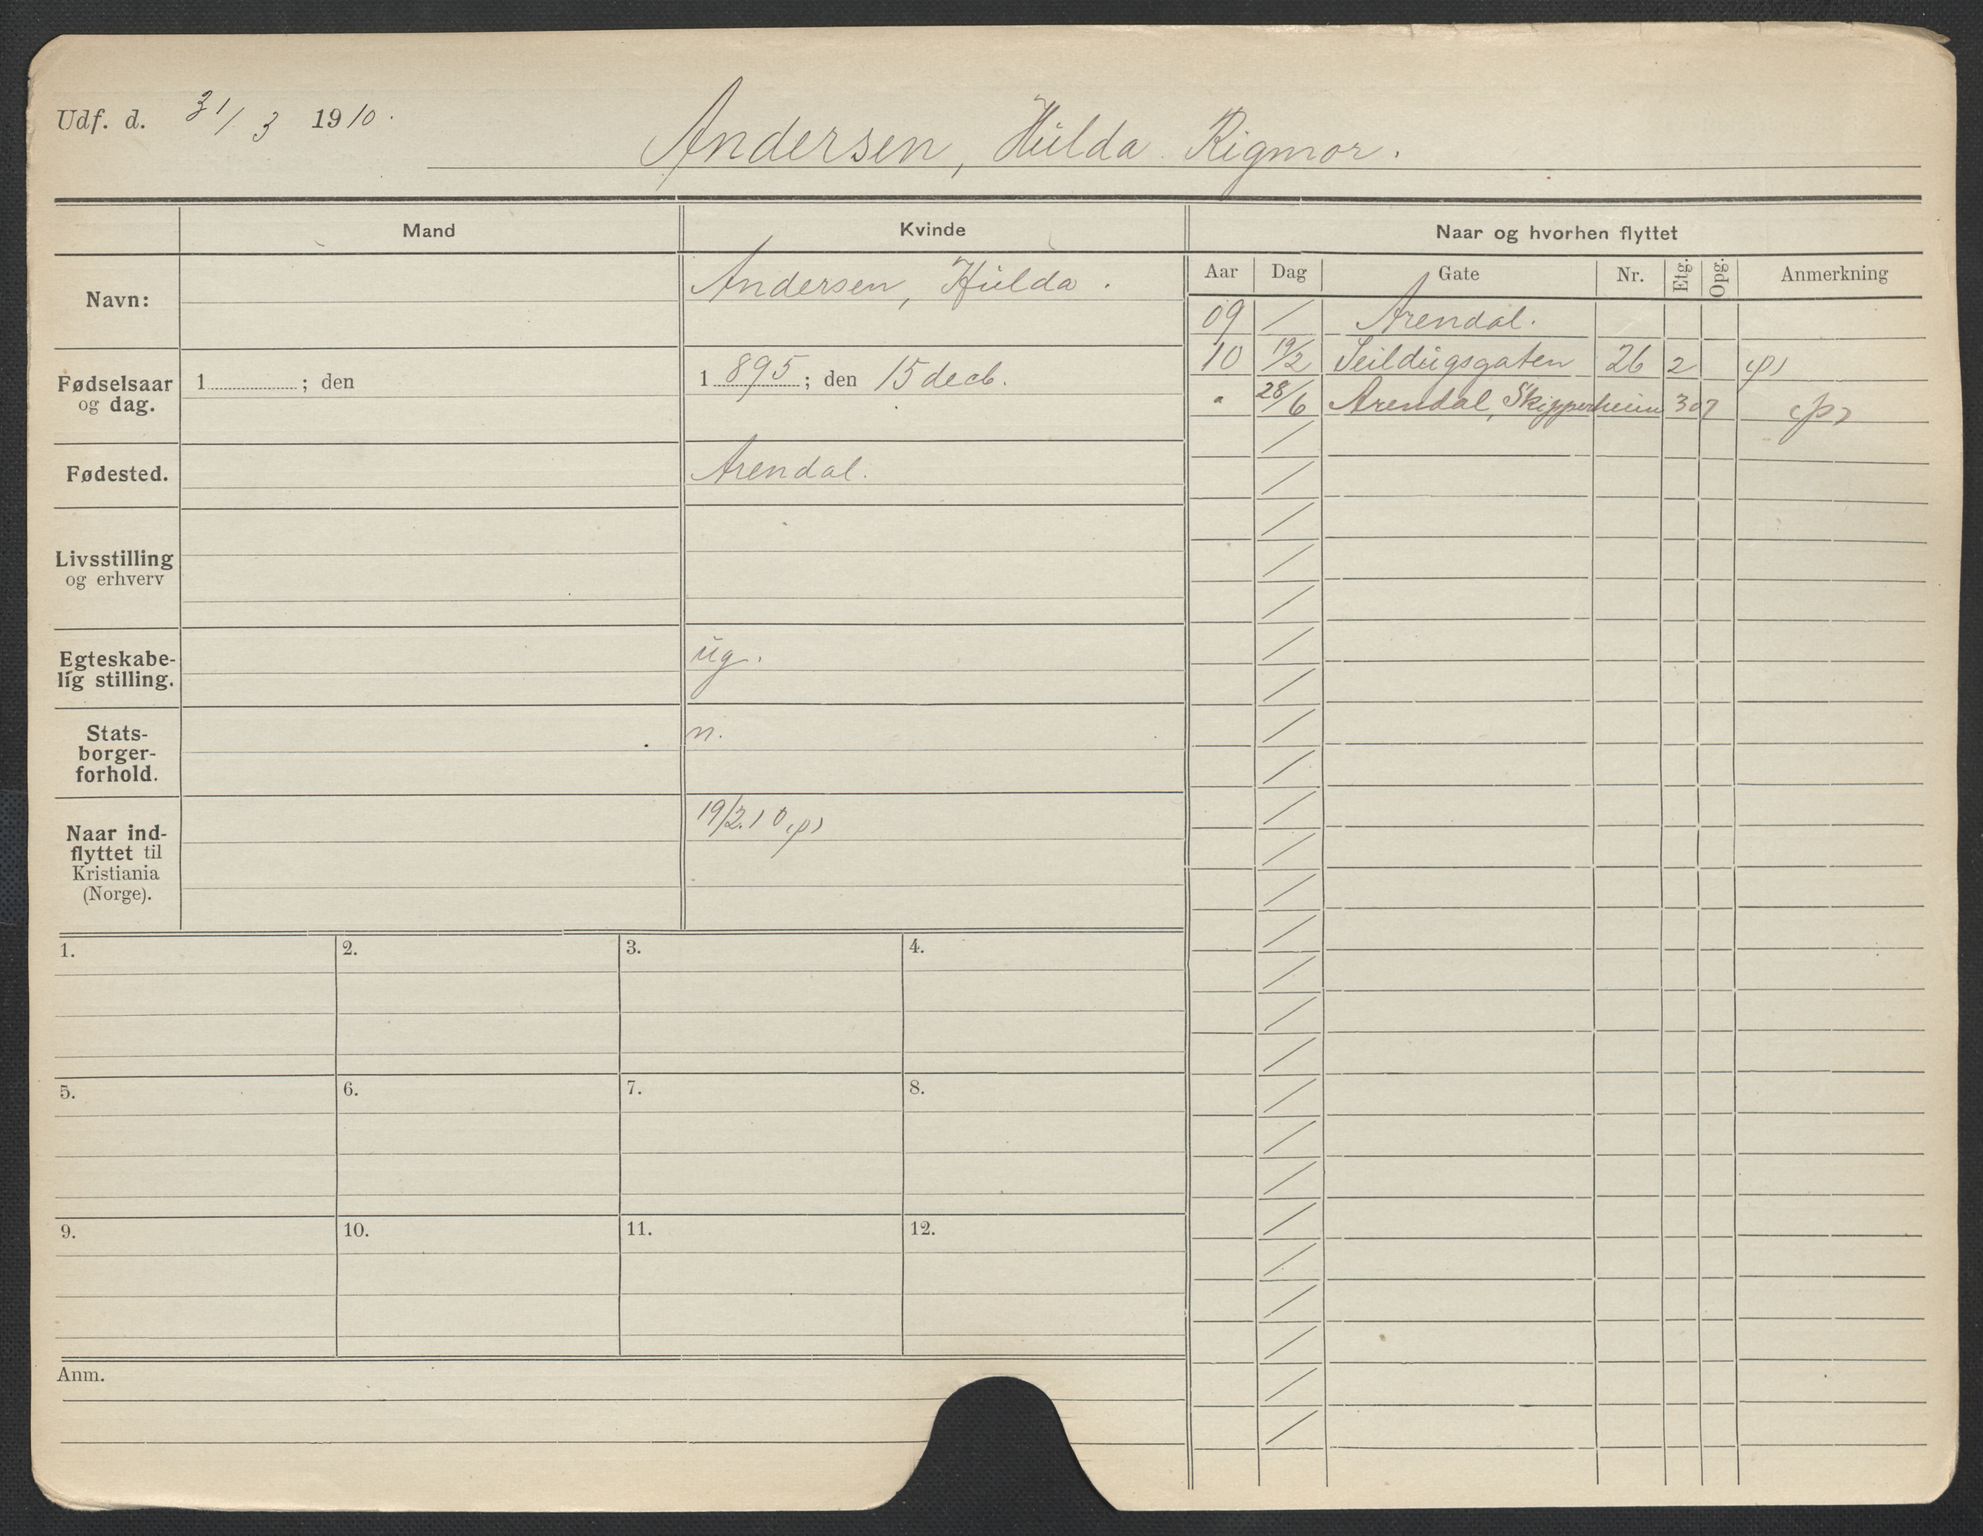 Udf. d. 31/3 1910.
Andersen, Hulda Rigmor.
Mand
Kvinde
Naar og hvorhen flyttet
Navn:
Andersen, Hulda.
Aar Dag Gate Nr. Etg. Opg. Anmerkning
09 / Arendal.
10 19/2 Seildugsgaten 26 2 (p)
" 28/6 Arendal, Skipperheim 307 (p)
Fødselsaar og dag.
1 ; den
1895; den 15 decb.
Fødested.
Arendal.
Livsstilling og erhverv
Egteskabe-
lig stilling.
ug.
Stats-
borger-
forhold.
n.
Naar ind-
flyttet til
Kristiania
(Norge).
19/2.10 (p)
1. 2. 3. 4.
5. 6. 7. 8.
9. 10. 11. 12.
Anm.